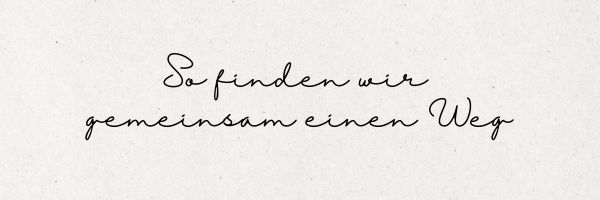 So finden wir
gemeinsam einen Weg